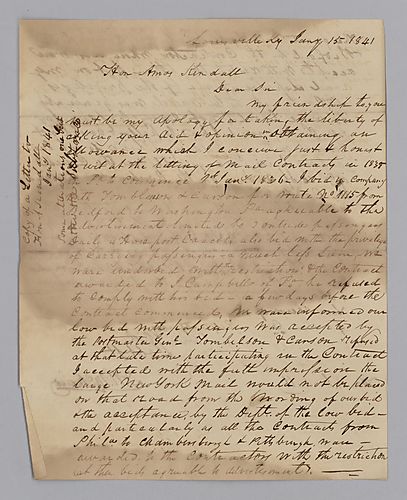 Louisville Ky Jany 15th 1841
Hon Amos Kendall
Dear Sir
My friendship to you
must be my apology for taking the liberty of
asking your Aid & opinion in Obtaining an
allowance which I conceive Just & honest
at the letting of Mail Contracts in 1835
to Commence 1st Jany 1836 I bid in company
with Tomblinson & Carson for Route No 1165 from
Bedford to Washington Pa agreeable to the
advertisement limited to
also bid with the privilege
of Carrying passengers a much less sum, We
ware underbid with restrictions & the Contract
awarded to J Campbell of Pa he refused
to Comply with his bid — a few days before the
Contract commenced, We ware informed our
low bid with passengers was accepted by
the Postmaster Genl Tombelson & Carson refused
at that late time participating in the Contract
I accepted with the full impression the
large New York Mail would not be placed
on that road from the Wording of our bid
& the acceptance by the Dept of the low bed —
and particularly as all the Contracts from
Phila to Chambersburgh & Pittsburgh ware —
awarded to the Contractors with the restriction
in the beds agreable to advertisement, —
Copy of a Letter to
Hon A Kendall
Jany 1841